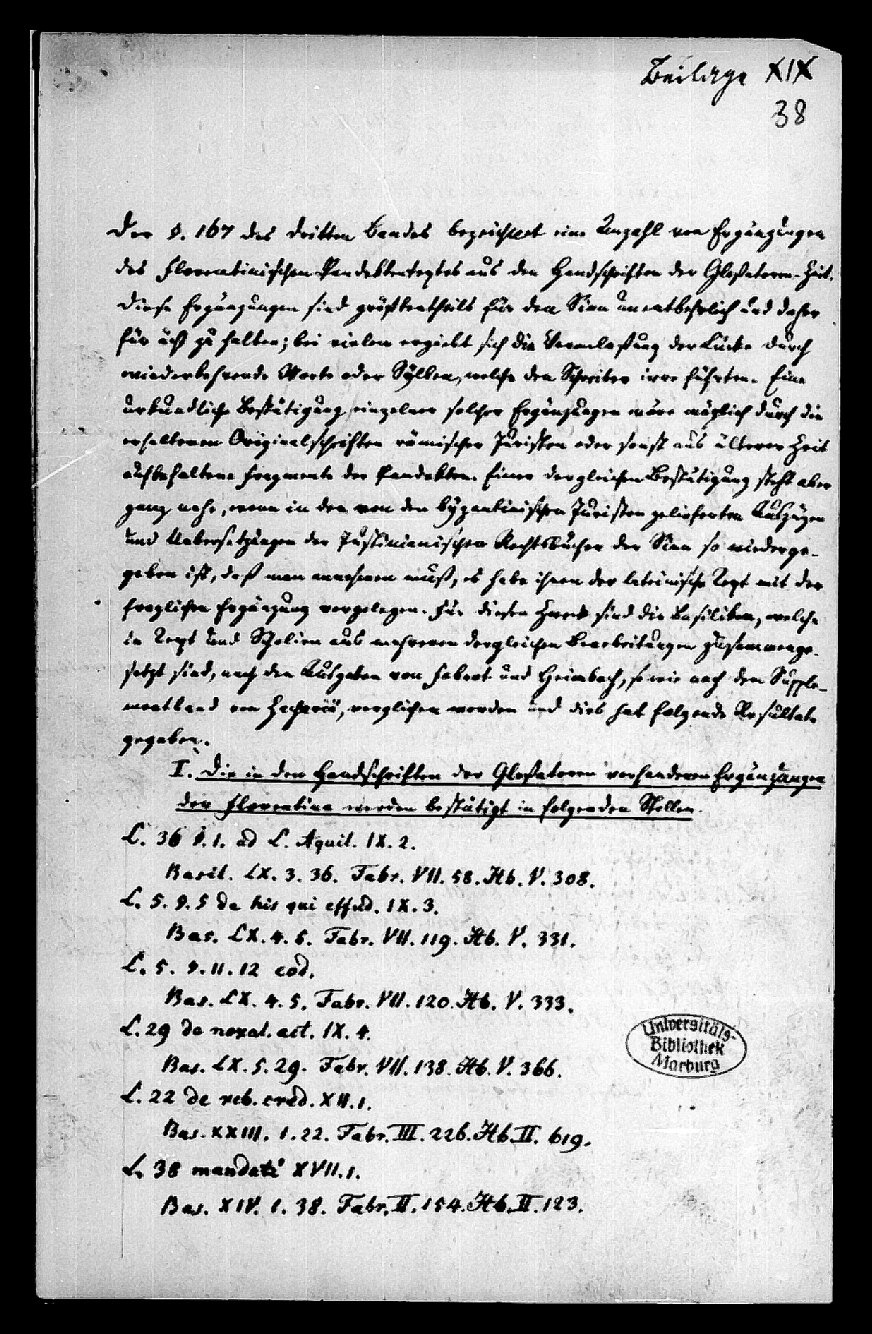 Beilage XIX
38
Der §. 167 des dritten Bandes bezeichnet eine Anzahl von Ergänzungen
des Florentinischen Pandektentextes aus den Handschriften der Glossatoren-Zeit.
Diese Ergänzungen sind größtentheils für den Sinn unentbehrlich und daher
für ächt zu halten; bei vielen ergiebt sich die Veranlaßung der Lücke durch
wiederkehrende Worte oder Sylben, welche den Schreiber irre führten. Eine
urkundliche Bestätigung einzelner solcher Ergänzungen wäre möglich durch die
erhaltenen Originalschriften römischer Juristen oder sonst aus älterer Zeit
aufbehaltene Fragmente der Pandekten. Einer dergleichen Bestätigung steht aber
ganz nahe, wenn in den von den byzantinischen Juristen gelieferten Auszügen
und Uebersetzungen der Justinianischen Rechtsbücher der Sinn so wiederge-
geben ist, daß man annehmen muß, es habe ihnen der lateinische Text mit der
fraglichen Ergänzung vorgelegen. Für diesen Zweck sind die Basiliken, welche
in Text und Scholien aus mehreren dergleichen Bearbeitungen zusammenge-
setzt sind, nach den Ausgaben von Fabrot und Heimbach, so wie nach dem Supple-
mentband von Zachariä, verglichen worden und dies hat folgende Resultate
gegeben.
I. Die in den Handschriften der Glossatoren vorhandenen Ergänzungen
der Florentina werden bestätigt in folgenden Stellen.
L. 36 §. 1. ad L. Aquil. IX. 2.
Basil. LX. 3. 36. Fabr. VII. 58. Hb. V. 308.
L. 5. §. 5 de his qui effud. IX. 3.
Bas. LX. 4. 5. Fabr. VII. 119. Hb. V. 331.
L. 5. §. 11. 12 eod.
Bas. LX. 4. 5. Fabr. VII. 120. Hb. V. 333.
L. 29 de noxal. act. IX. 4.
Bas. LX. 5. 29. Fabr. VII. 138. Hb. V. 366.
L. 22 de reb. cred. XII. 1.
Bas. XXIII. 1. 22. Fabr. III. 226. Hb. II. 619.
L. 38 mandati XVII. 1.
Bas. XIV. 1. 38. Fabr. II. 154. Hb. II. 123.
Universitäts-
Bibliothek
Marburg